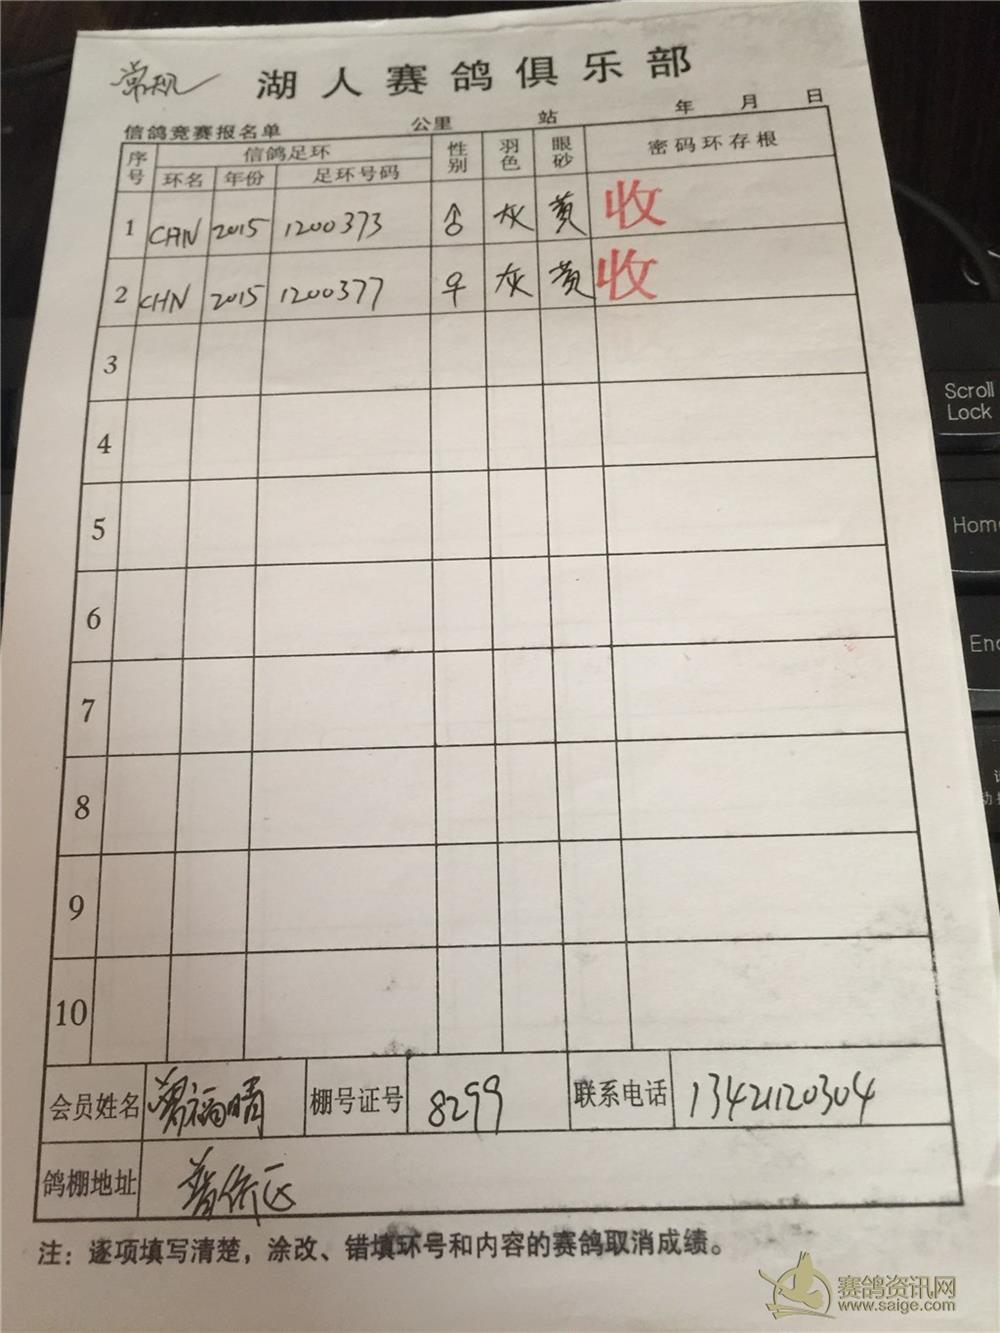 常规
湖人赛鸽俱乐部
信鸽竞赛报名单 公里 站 年 月 日
序号 信鸽足环 性别 羽色 眼砂 密码环存根
环名 年份 足环号码
1 CHN 2015 1200373 ♂ 灰 黄 收
2 CHN 2015 1200377 ♀ 灰 黄 收
3
4
5
6
7
8
9
10
会员姓名 福晴 棚号证号 8299 联系电话 13421120304
鸽棚地址 普侨区
注：逐项填写清楚，涂改、错填环号和内容的赛鸽取消成绩。
Scroll Lock
Home
End
赛鸽资讯网
www.saige.com